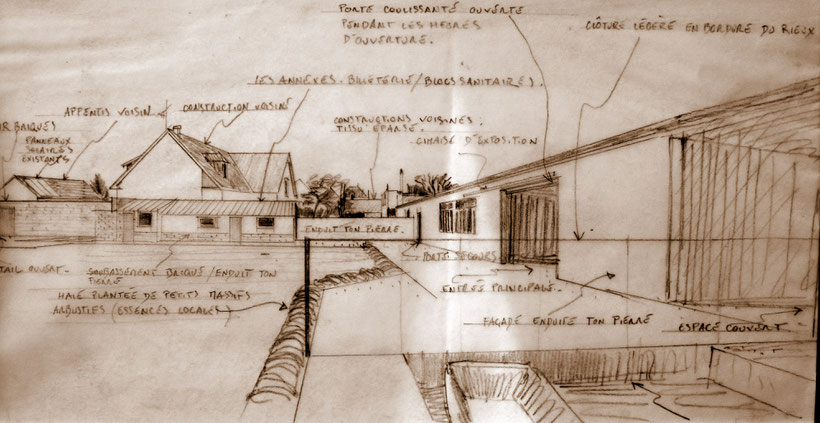 PORTE COULISSANTE OUVERTE
PENDANT LES HEURES
D'OUVERTURE.
CLÔTURE LÉGÈRE EN BORDURE DU RIEUX
LES ANNEXES. BILLETERIE/BLOCS SANITAIRES).
APPENTIS VOISIN
CONSTRUCTION VOISINE
CONSTRUCTIONS VOISINES.
TISSU EPARSE.
CIMAISE D'EXPOSITION
BRIQUES
PANNEAUX
SOLAIRES
EXISTANTS
ENDUIT TON PIERRE.
TAIL OUVERT.
SOUBASSEMENT BRIQUE/ENDUIT TON
PIERRE
PORTE SECOURS
HAIE PLANTÉE DE PETITS MASSIFS
ARBUSTIFS (ESSENCES LOCALES)
ENTRÉE PRINCIPALE.
FAÇADE ENDUITE TON PIERRE
ESPACE COUVERT